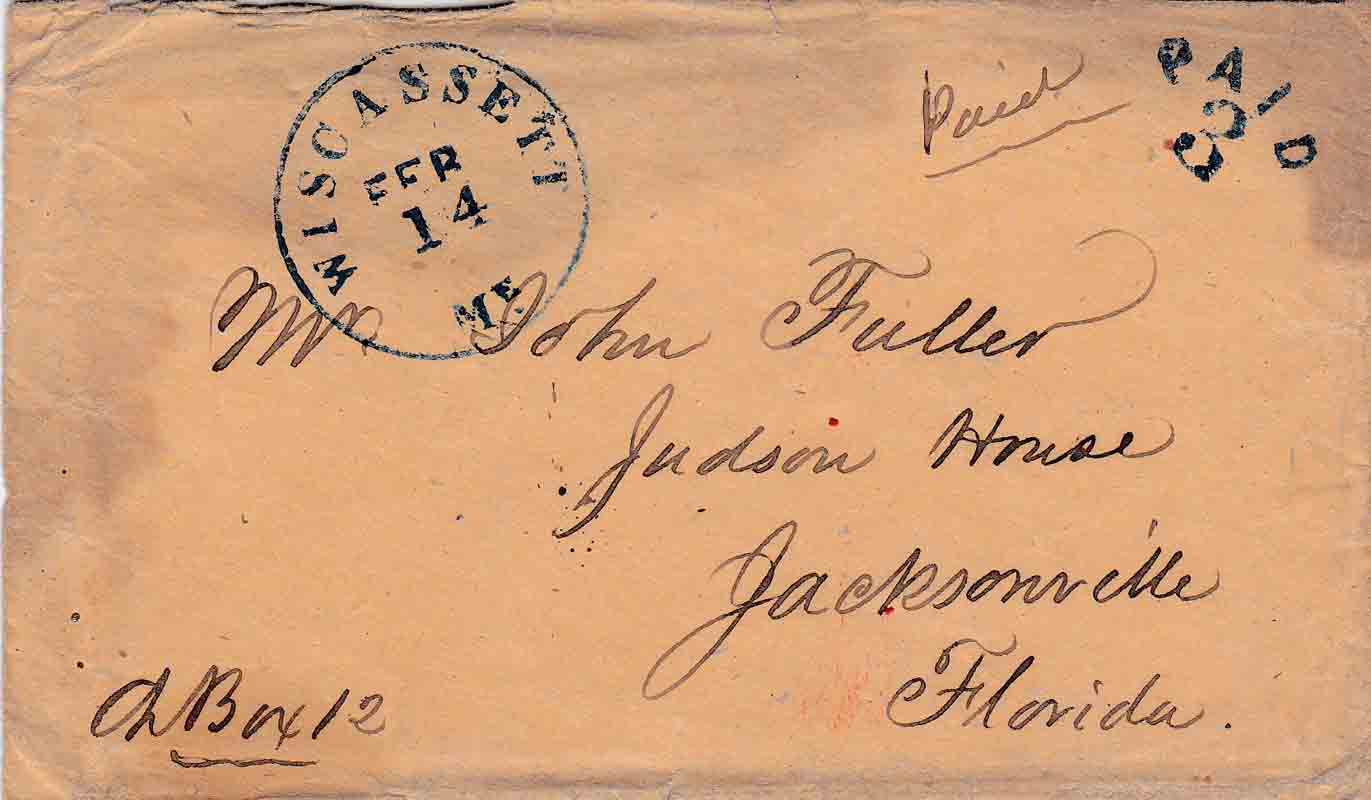 WISCASSETT
FEB
14
ME
Paid
PAID
3
Mr John Fuller
Judson House
Jacksonville
Florida.
Box 12